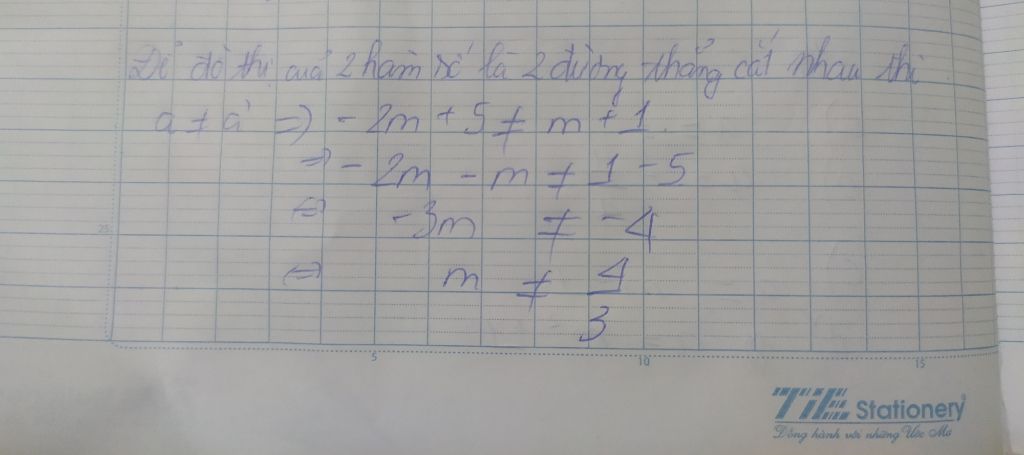 Để đồ thị cuả 2 hàm số là 2 đường thẳng cắt nhau thì
a ≠ a' => -2m + 5 ≠ m + 1
=> -2m - m ≠ 1 - 5
<=> -3m ≠ -4
<=> m ≠ 4/3
25
5 10 15
TiE Stationery
Đồng hành với những Ước Mơ